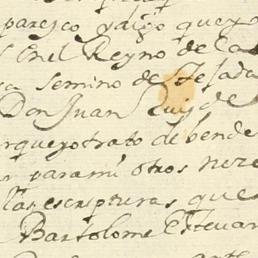 paresco y digo que yo
Enel Reyno de las
semino de Tejada
Don Juan Ruiz de
porque yo trato de bende
paramì otros neze
llas escripturas que
Bartolome Estevan